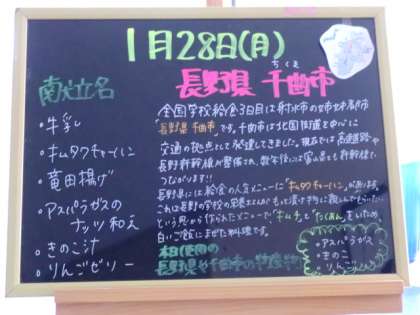 1月28日(月)
ちくま
長野県 千曲市
献立名
・牛乳
・キムタクチャーハン
・竜田揚げ
・アスパラガスの
ナッツ和え
・きのこ汁
・りんごゼリー
全国学校給食3日目は射水市の姉妹都市
「長野県 千曲市」です。千曲市は北国街道を中心に
交通の拠点として発達してきました。現在では高速道路や
長野新幹線が整備され、数年後には富山県とも新幹線で
つながります!!
長野県には給食の人気メニューに「キムタクチャーハン」があります。
これは長野の学校の栄養士さんが、もっと漬け物に親しんでもらいたい
という思いから作られたメニューで「キムチ」と「たくあん」をいため、
白いご飯にまぜた料理です。
本日使用の
長野県や千曲市の特産物
・アスパラガス
・きのこ
・りんご